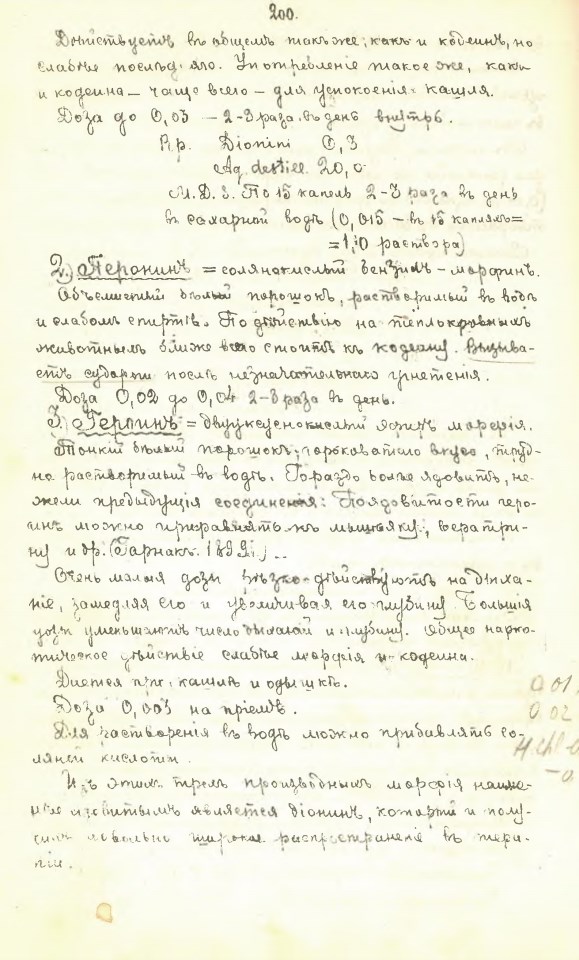 200.
Дѣйствуетъ въ общемъ также, какъ и кодеинъ, но
слабѣе послѣдняго. Употребленіе такое же, какъ
и кодеина — чаще всего — для успокоенія кашля.
Доза до 0,03 — 2-3 раза въ день внутрь.
Rp. Dionini 0,3
Aq. destill. 20,0
M. D. S. По 15 капель 2-3 раза въ день
въ сахарной водѣ (0,015 — въ 15 капляхъ =
= 1,0 раствора)
2.) Перонинъ = солянокислый бензилъ-морфинъ.
Объемистый бѣлый порошокъ, растворимый въ водѣ
и слабомъ спиртѣ. По дѣйствію на теплокровныхъ
животныхъ ближе всего стоитъ къ кодеину. Вызыва-
етъ судороги послѣ незначительнаго угнетенія.
Доза 0,02 до 0,04 2-3 раза въ день.
3.) Героинъ = двууксуснокислый эфиръ морфія.
Тонкій бѣлый порошокъ, горьковатаго вкуса, труд-
но растворимый въ водѣ. Гораздо болѣе ядовитъ, не-
жели предыдущія соединенія: По ядовитости геро-
инъ можно приравнять къ мышьяку, вератри-
ну и др. (Гарнакъ. 1899 г.) ..
Очень малыя дозы рѣзко дѣйствуютъ на дыха-
ніе, замедляя его и увеличивая его глубину. Большія
дозы уменьшаютъ число дыханій и глубину. Общее нарко-
тическое дѣйствіе слабѣе морфія и кодеина.
Дается при кашлѣ и одышкѣ.
Доза 0,003 на пріемъ.
Для растворенія въ водѣ можно прибавлять со-
ляной кислоты.
Изъ этихъ трехъ производныхъ морфія наиме-
нѣе ядовитымъ является діонинъ, который и полу-
чилъ довольно широкое распространеніе въ тера-
піи.
0 01
0 02